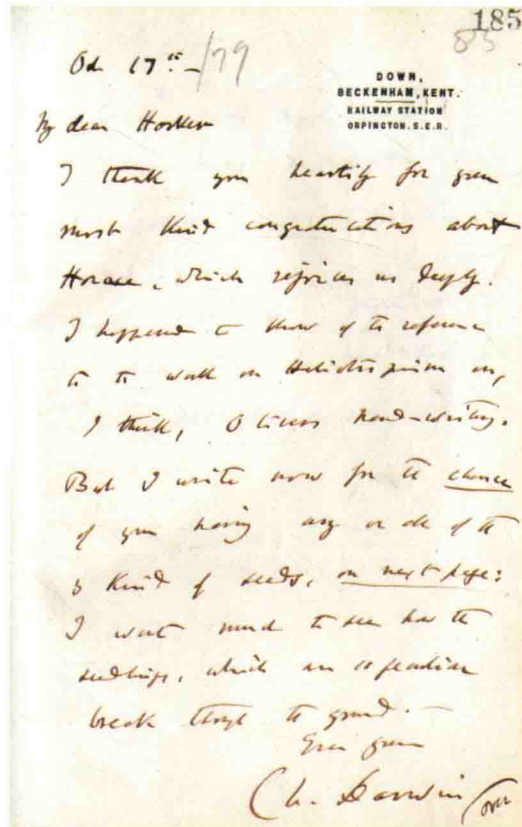 185
85
Oct 17th — /79
DOWN,
BECKENHAM, KENT.
RAILWAY STATION
ORPINGTON. S.E.R.
My dear Hooker
I thank you heartily for your
most kind congratulations about
Horace, which rejoices us deeply.
I happened to know of the reference
to the work on Heliotropism in,
I think, Olivers hand-writing.
But I write now for the chance
of your having any or all of the
3 kind of seeds, on next page:
I want much to see how the
seedlings, which are so peculiar
break through the ground. —
Ever yours
Ch. Darwin
(over